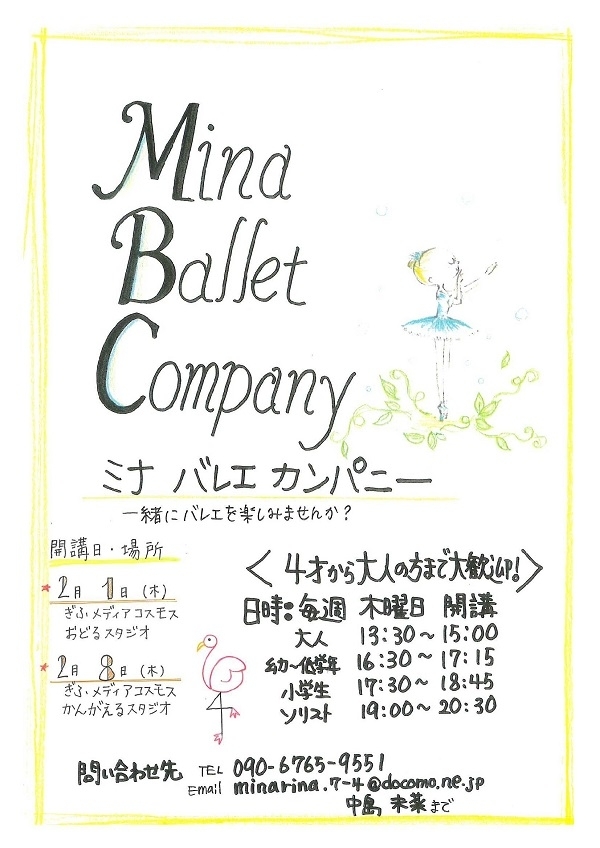 Mina
Ballet
Company
ミナ バレエ カンパニー
一緒にバレエを楽しみませんか？
開講日・場所
★2月 1日(木)
ぎふメディアコスモス
おどるスタジオ
★2月 8日(木)
ぎふメディアコスモス
かんがえるスタジオ
〈4才から大人の方まで大歓迎!〉
日時:毎週 木曜日 開講
大人 13:30～15:00
幼か～低学年 16:30～17:15
小学生 17:30～18:45
ソリスト 19:00～20:30
問い合わせ先 TEL 090-6765-9551
Email minarina.7-4@docomo.ne.jp
中島 未菜まで